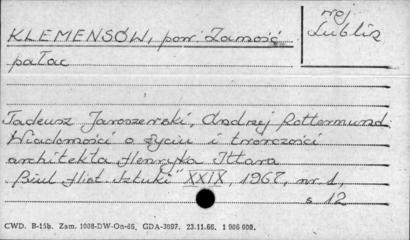 KLEMENSÓW, pow. Zamość
woj. Lublin
pałac
Tadeusz Jaroszewski, Andrzej Rottermund
Wiadomości o życiu i twórczości
architekta Henryka Ittara
"Biul. Hist. Sztuki" XXIX, 1967, nr. 1,
s 12
CWD. B-15b. Zam. 1098-DW-On-66. GDA-3097. 23.11.66. 1 906 000.